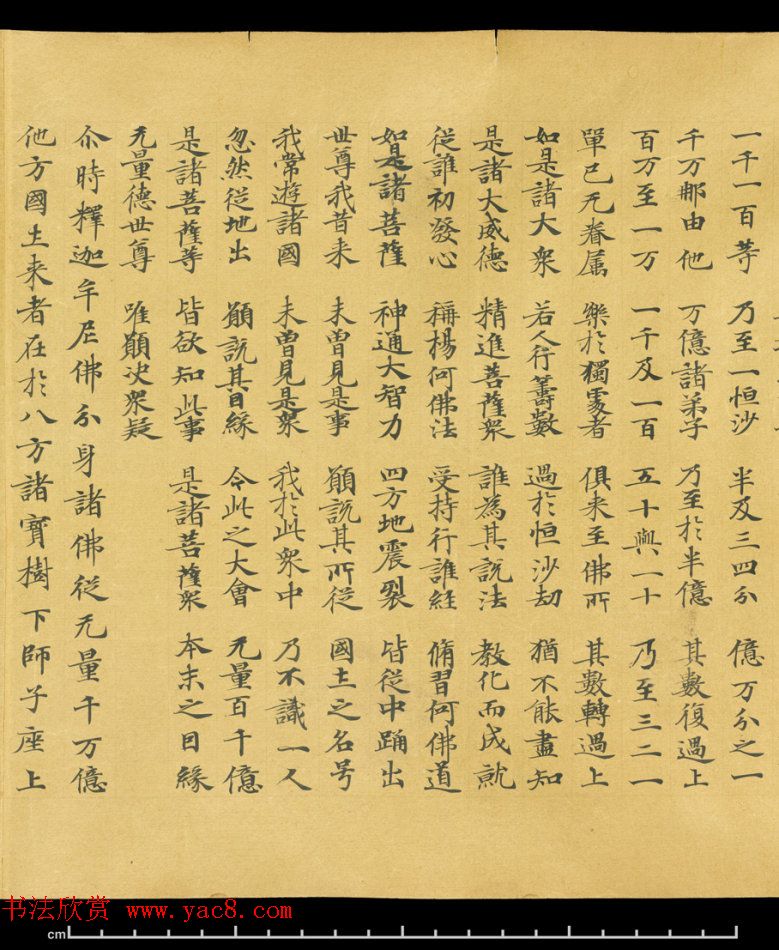 一千一百等 乃至一恒沙 半及三四分 億万分之一
千万那由他 万億諸弟子 乃至於半億 其數復過上
百万至一万 一千及一百 五十與一十 乃至三二一
單己无眷属 樂於獨處者 俱来至佛所 其數轉過上
如是諸大衆 若人行籌數 過於恒沙劫 猶不能盡知
是諸大威德 精進菩薩衆 誰為其説法 教化而成就
従誰初發心 稱楊何佛法 受持行誰経 脩習何佛道
如是諸菩薩 神通大智力 四方地震裂 皆従中踊出
世尊我昔来 未曽見是事 願説其所従 國土之名号
我常遊諸國 未曽見是衆 我於此衆中 乃不識一人
忽然従地出 願説其因緣 今此之大會 无量百千億
是諸菩薩等 皆欲知此事 是諸菩薩衆 本末之因緣
无量德世尊 唯願决衆疑
尒時釋迦牟尼佛分身諸佛従无量千万億
他方國土来者在於八方諸寶樹下師子座上
书法欣赏 www.yac8.com
cm